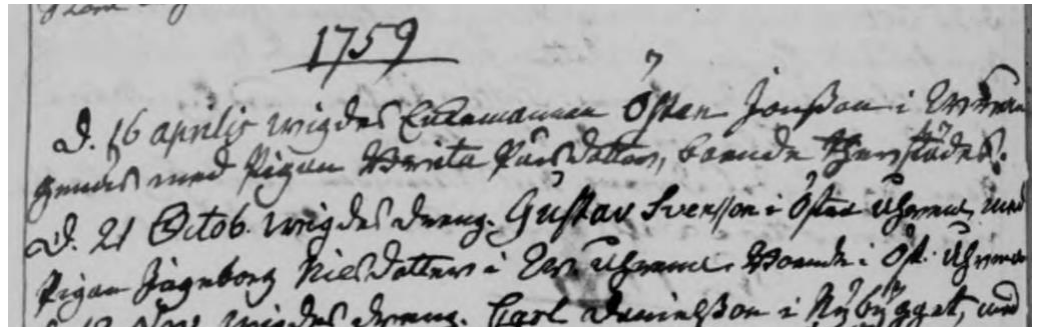 1759
D. 16 aprilis wigdes Enkemannen Östen Jonßon i
med Pigan Brita Pärsdotter, boende therstädes.
D. 21 Octob. wigdes dreng. Gustav Svensson i Östra Uhrena, med
Pigan Ingeborg Nilsdotter i Uhrena. Boende i Öst. Uhrena
wigdes dreng. Carl Danielßon i Nÿbÿgget, med